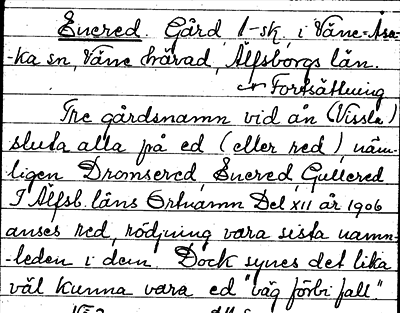 Enered. Gård 1-sk. i Väne-Åsa-
-ka sn, Väne härad, Älfsborgs län.
Fortsättning
Tre gårdsnamn vid ån (Vissla)
sluta alla på ed (eller red), näm-
ligen Dromsered, Enered, Gullered
I Älfsb. läns Ortnamn Del XII år 1906
anses red, rödjning vara sista namn-
-leden i dem. Dock synes det lika
väl kunna vara ed "väg förbi fall".